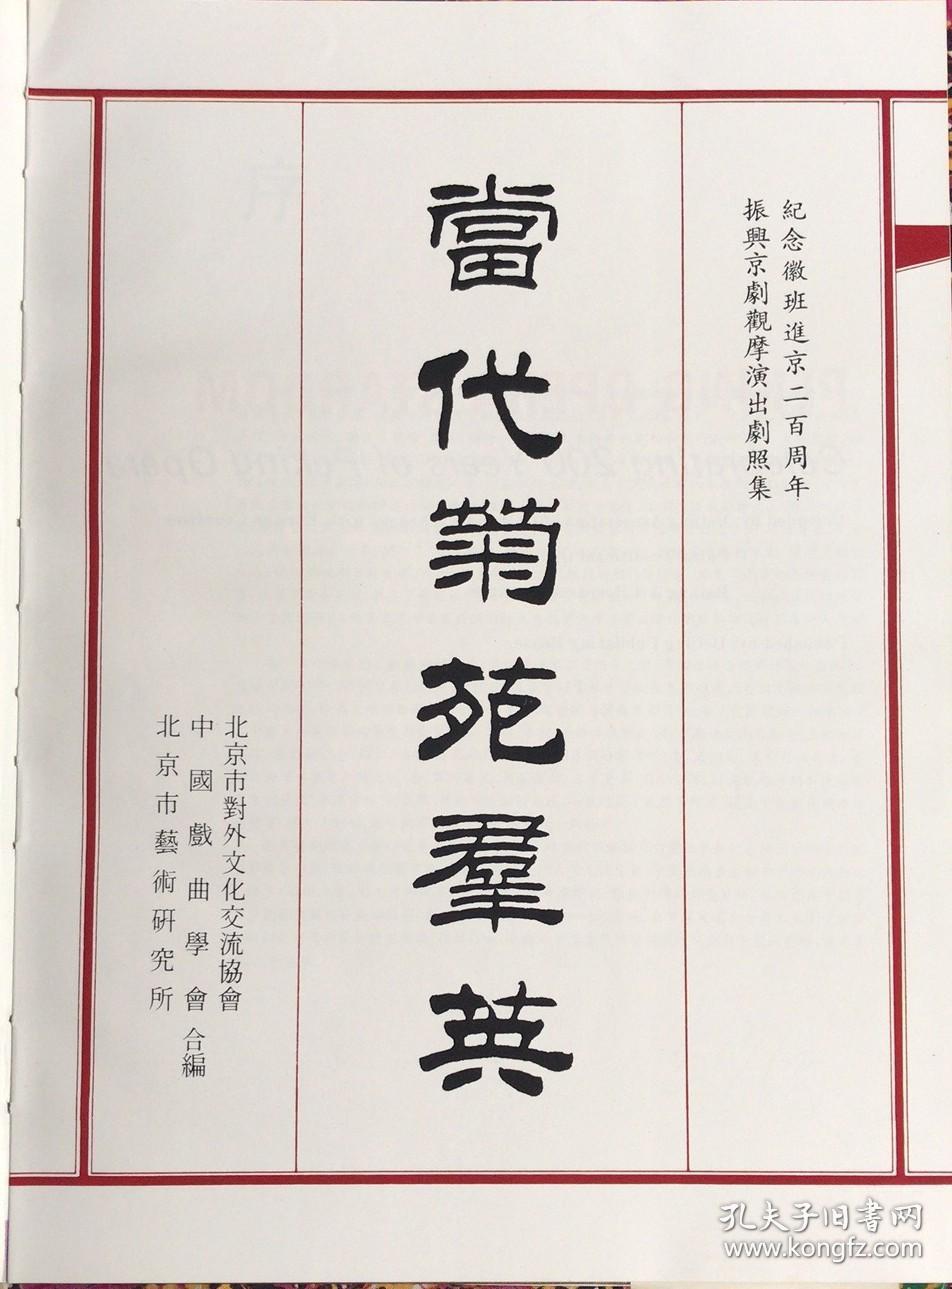 紀念徽班進京二百周年
振興京劇觀摩演出劇照集
當代菊苑羣英
北京市對外文化交流協會
中國戲曲學會合編
北京市藝術研究所
序
孔夫子旧书网
www.kongfz.com